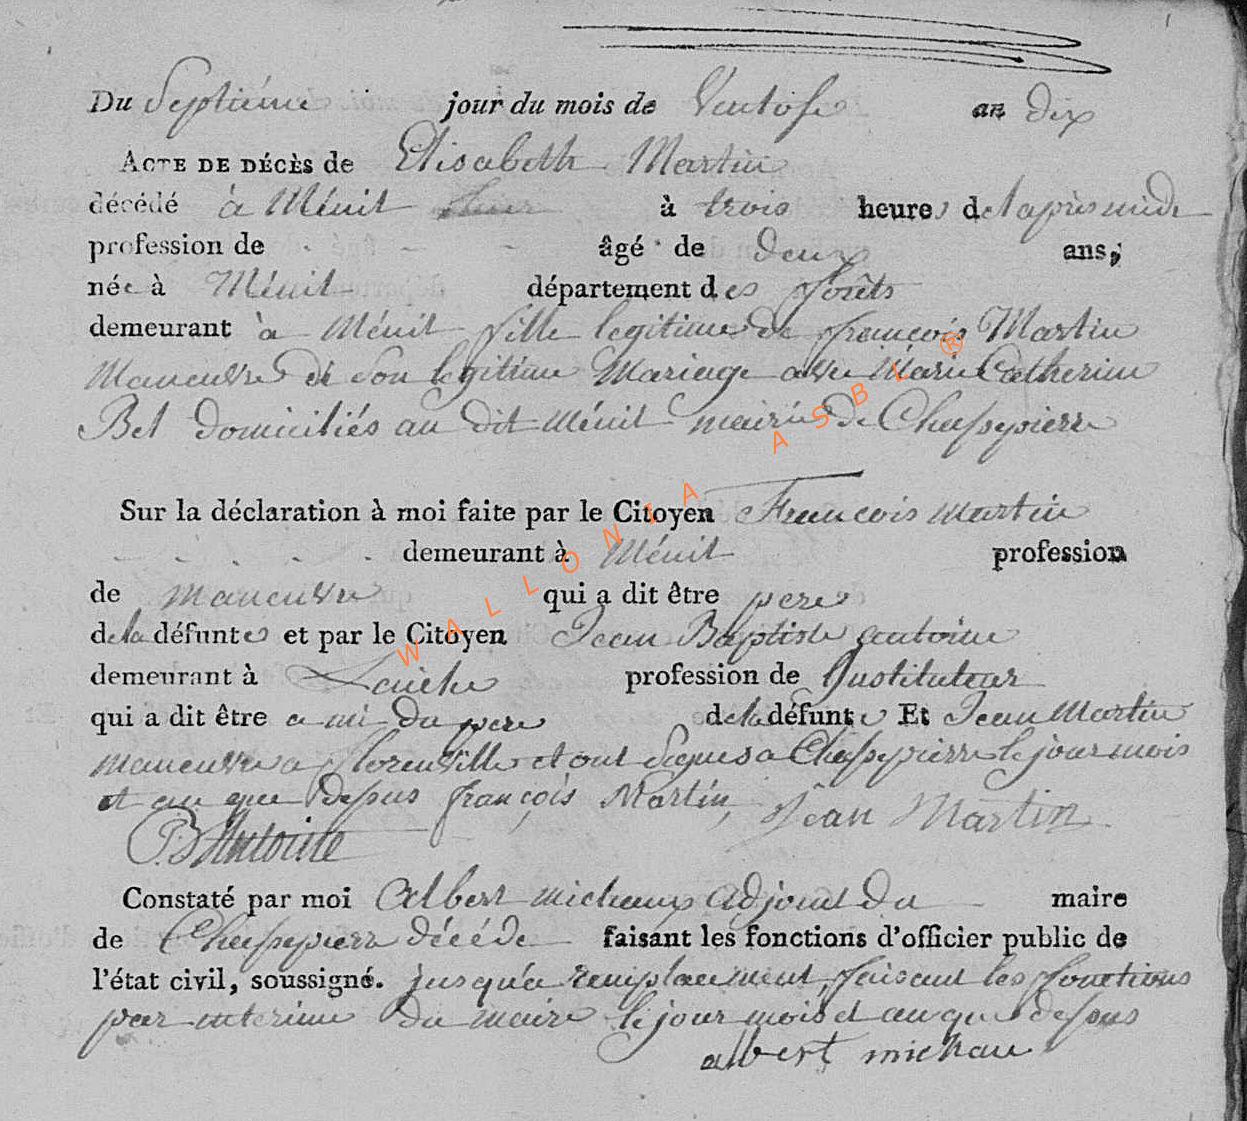 Du Septiéme jour du mois de Ventose an dix
ACTE DE DÉCÈS de Elisabeth Martin
décédé à Ménil à trois heures de l'après midi
profession de - âgé de deux ans,
née à Ménil département des forêts
demeurant à Ménil fille legitime de françois Martin
Maneuvre et de son legitime Mariage avec Marie Catherine
Bet domiciliés au dit Ménil mairie de Chassepierre
Sur la déclaration à moi faite par le Citoyen François Martin
demeurant à Ménil profession
de maneuvre qui a dit être pere
de la défunte et par le Citoyen Jean Baptiste antoine
demeurant à Laiche profession de Instituteur
qui a dit être ami du pere de la défunte Et Jean Martin
maneuvre a florenville et ont signes a Chassepierre le jour mois
et an que dessus françois Martin, Jean Martin
JB Antoine
Constaté par moi Albert michaux adjoint du maire
de Chassepierre décédé faisant les fonctions d'officier public de
l'état civil, soussigné. jusqu'a remplacement faisant les fonctions
par interime du maire le jour mois et an que dessus
albert michau
WALLONIA ASBL ®